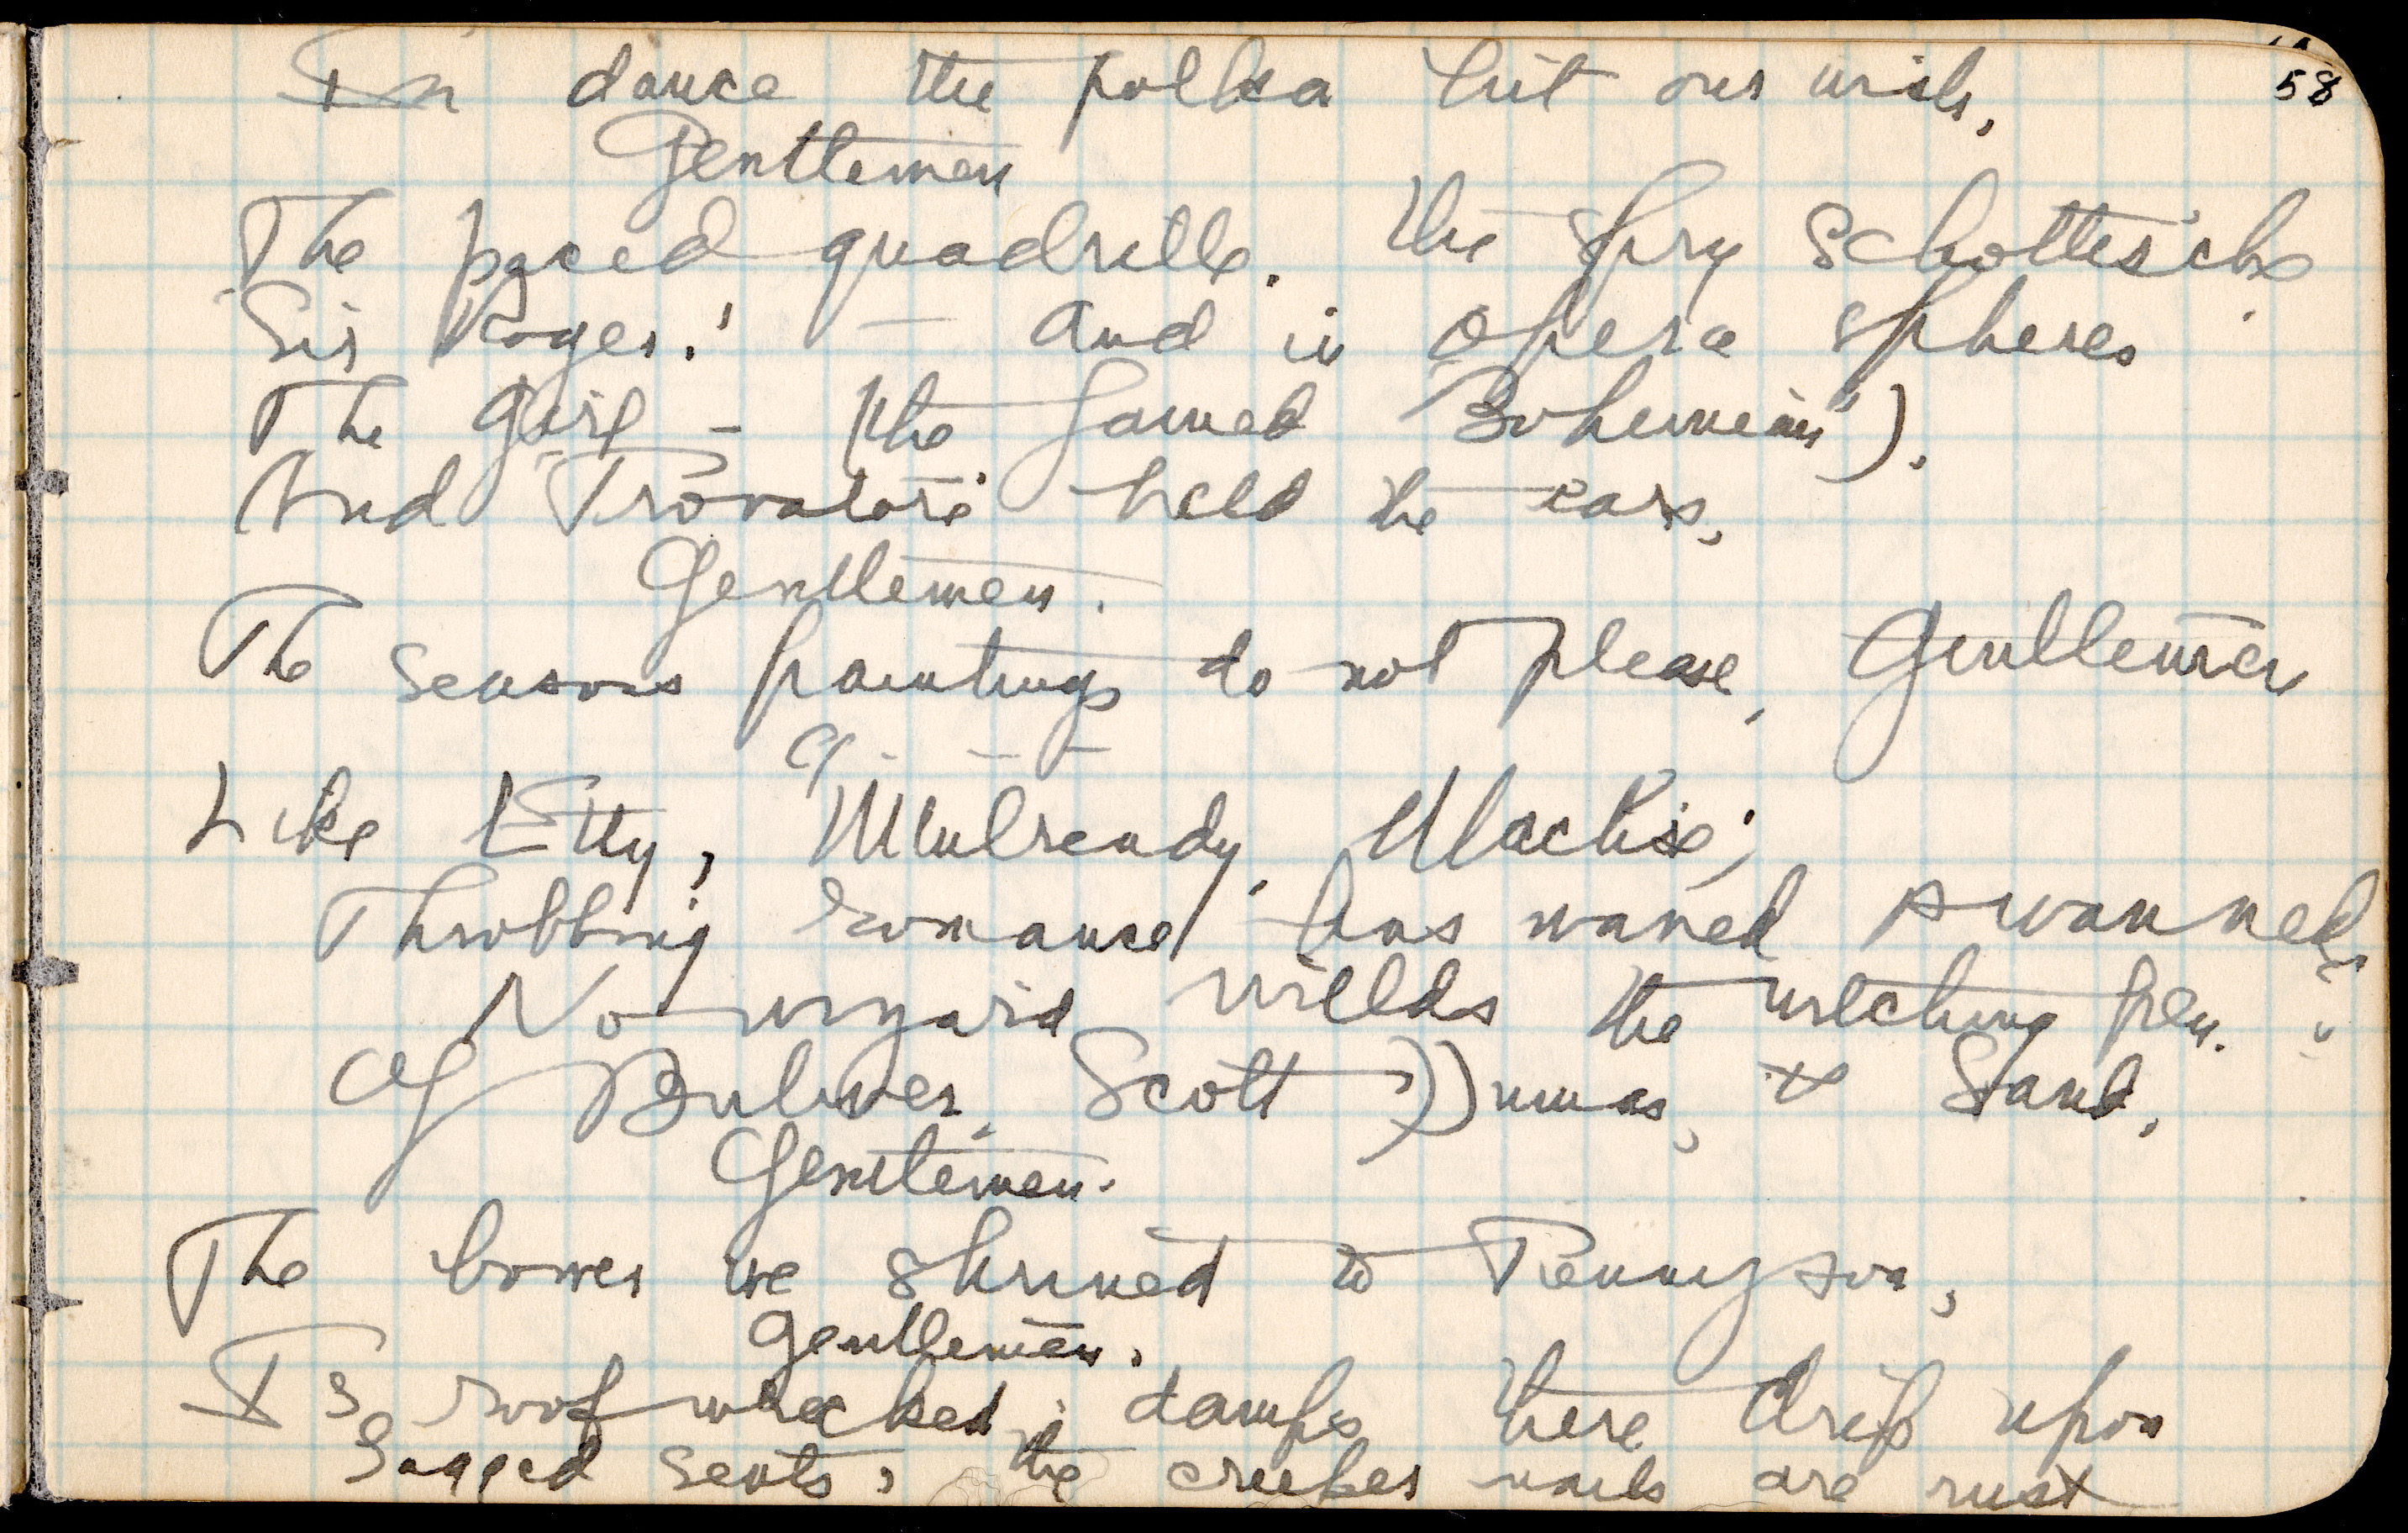 58
In dance the polka hit our wish,
Gentlemen
The paced quadrille, the spry Schottische
"Sir Roger." — And in opera spheres
The "Girl" - (the famed "Bohemian"),
And "Trovatore" held the ears,
Gentlemen.
The seasons paintings do not please, Gentlemen
G - - -
Like Etty, Mulready, Maclise;
Throbbing romance has waned & wanned;
No wizard wields the witching pen
Of Bulwer, Scott, Dumas, & Sand,
Gentlemen.
The bower we shrined to Tennyson,
Gentlemen,
Is roof-wrecked; damps there drip upon
Sagged seats, the creeper nails are rust